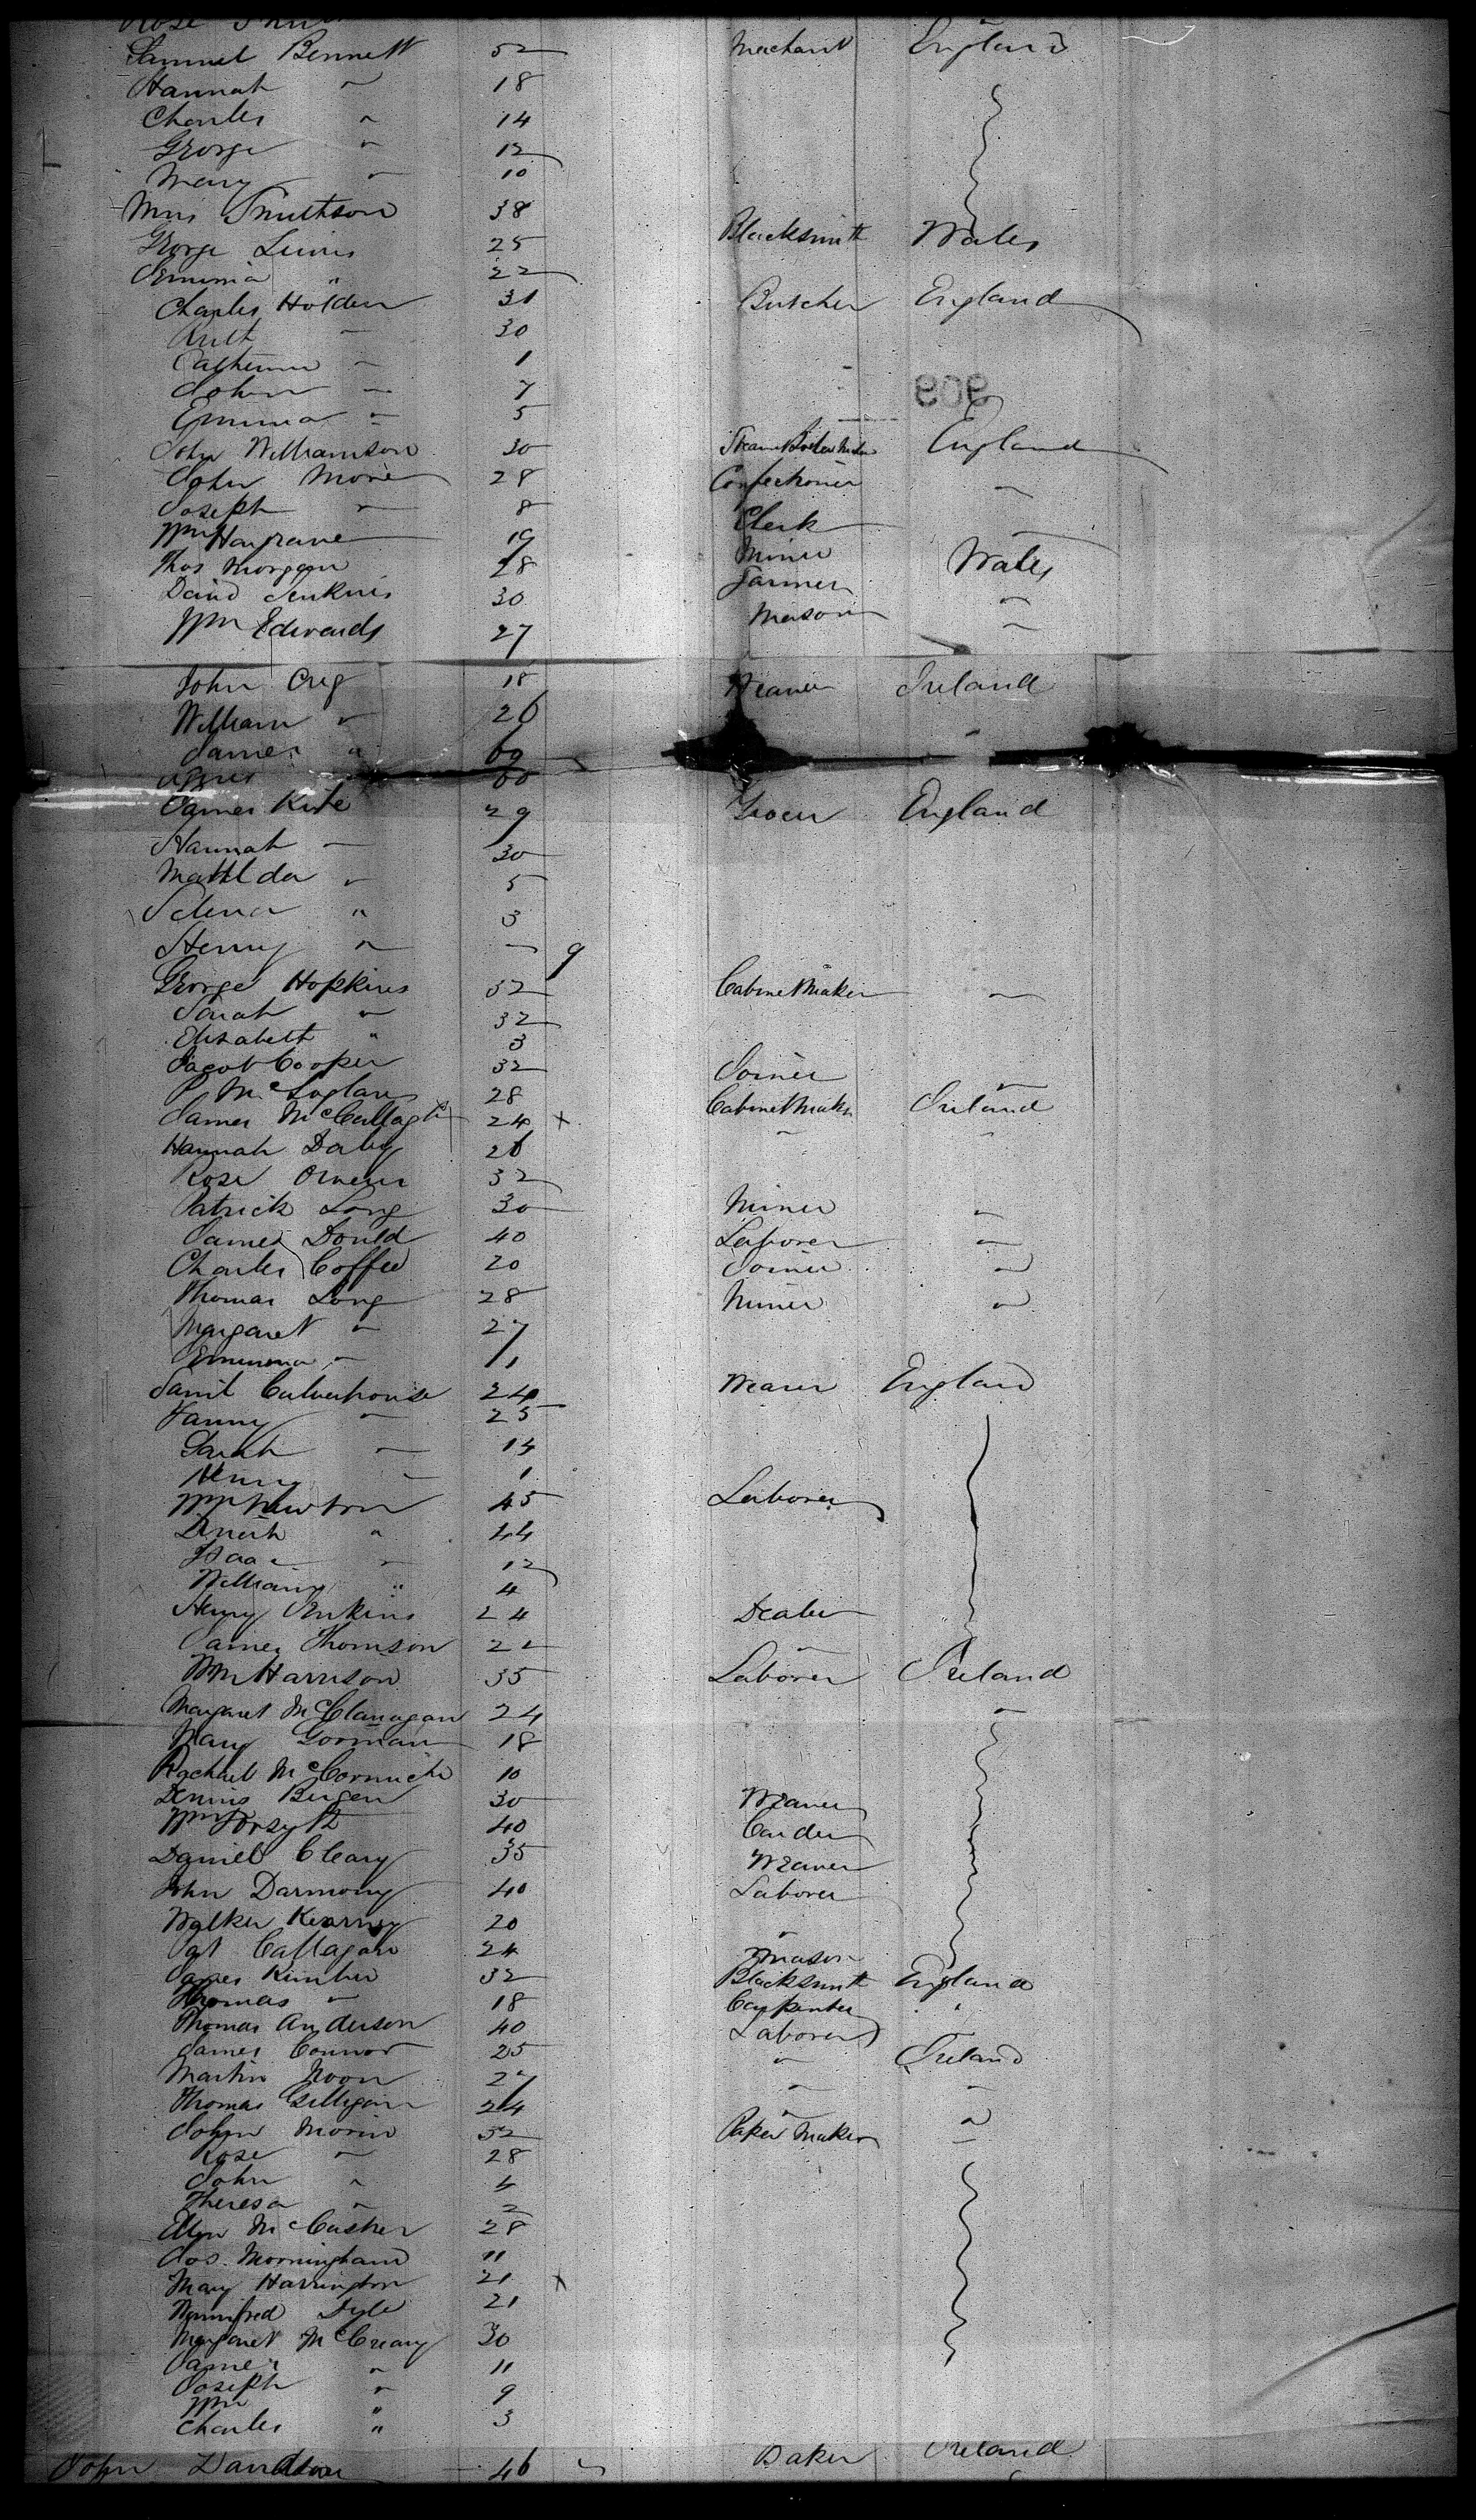 Samuel Bennett 52 Mechanist England
Hannah " 18
Charles " 14
George " 12
Mary " 10
Mrs Smithson 38
George Lewis 25 Blacksmith Wales
Jemima " 22
Charles Holden 31 Butcher England
Ruth " 30
Catherine " 1
John " 7
Emma " 5
John Williamson 30 Steam Boiler Maker England
John More 28 Confectioner "
Joseph " 8
Wm Hargrave 19 Clerk "
Thos Morgan 28 Miner Wales
David Jenkins 30 Farmer "
Wm Edwards 27 Mason "
John 18 Weaver Ireland
William " 26
James " 60
Agnes 60
James Kite 29 Grocer England
Hannah " 30
Matilda " 5
Selena " 3
Henry " - 9
George Hopkins 32 Cabinet Maker "
Sarah " 32
Elisabeth " 3
Jacob Cooper 32 Joiner "
P. 28 Cabinet Maker Ireland
James McCallagh 24 x " "
Hannah Daley 26
Rose Owens 32
Patrick Long 30 Miner "
James Dould 40 Laborer "
Charles Coffee 20 Joiner "
Thomas Long 28 Miner "
Margaret " 27
" 11
Saml Culverhouse 24 Weaver England
Fanny " 25
Sarah " 14
Henry " 1
Wm Newton 45 Laborer
" 44
Isaac " 12
William " 4
Henry Jenkins 24 Dealer
James Thomson 22 "
Wm Harrison 35 Laborer Ireland
Margaret McClanagan 24 "
Mary Gorman 18
Rachael McCormick 10
Dennis Bergen 30 Weaver
Wm Forsyth 40 Carder
Daniel Cleary 35 Weaver
John Darmony 40 Laborer
Walker Kearney 20 "
Pat Callagan 24 Mason
James Kimber 32 Blacksmith England
Thomas " 18 Carpenter "
Thomas Anderson 40 Laborer
James Connor 25 " Ireland
Martin Noon 27 " "
Thomas Gilligan 24 " "
John Morin 32 Paper Maker "
Rose " 28
John " 4
Theresa " 2
Ellen McCusker 28
Jos. Morningham 11
Mary Harrington 21 x
Winnifred 21
Margaret McCreary 30
James " 11
Joseph " 9
Wm " 
Charles " 3
John Davidson 46 Baker Ireland